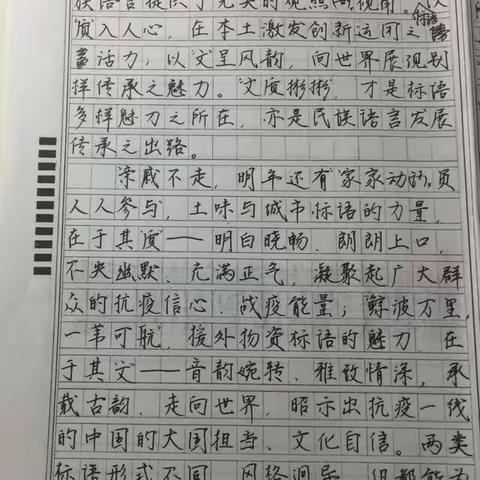 质入人心，在本土激发创新运用之语
言活力；以“文”呈风韵，向世界展现别
样传承之魅力。“文质彬彬”，才是标语
多样魅力之所在，亦是民族语言发展
传承之出路。
“亲戚不走，明年还有”“家家动员，
人人参与”，土味与城市标语的力量，
在于其“质”——明白晓畅、朗朗上口，
不失幽默、充满正气，凝聚起广大群
众的抗疫信心、战疫能量；“鲸波万里，
一苇可航”，援外物资标语的魅力，在
于其“文”——音韵婉转、雅致情深，承
载古韵、走向世界，昭示出抗疫一线
的中国的大国担当、文化自信。两类
标语形式不同、风格迥异，但都能为